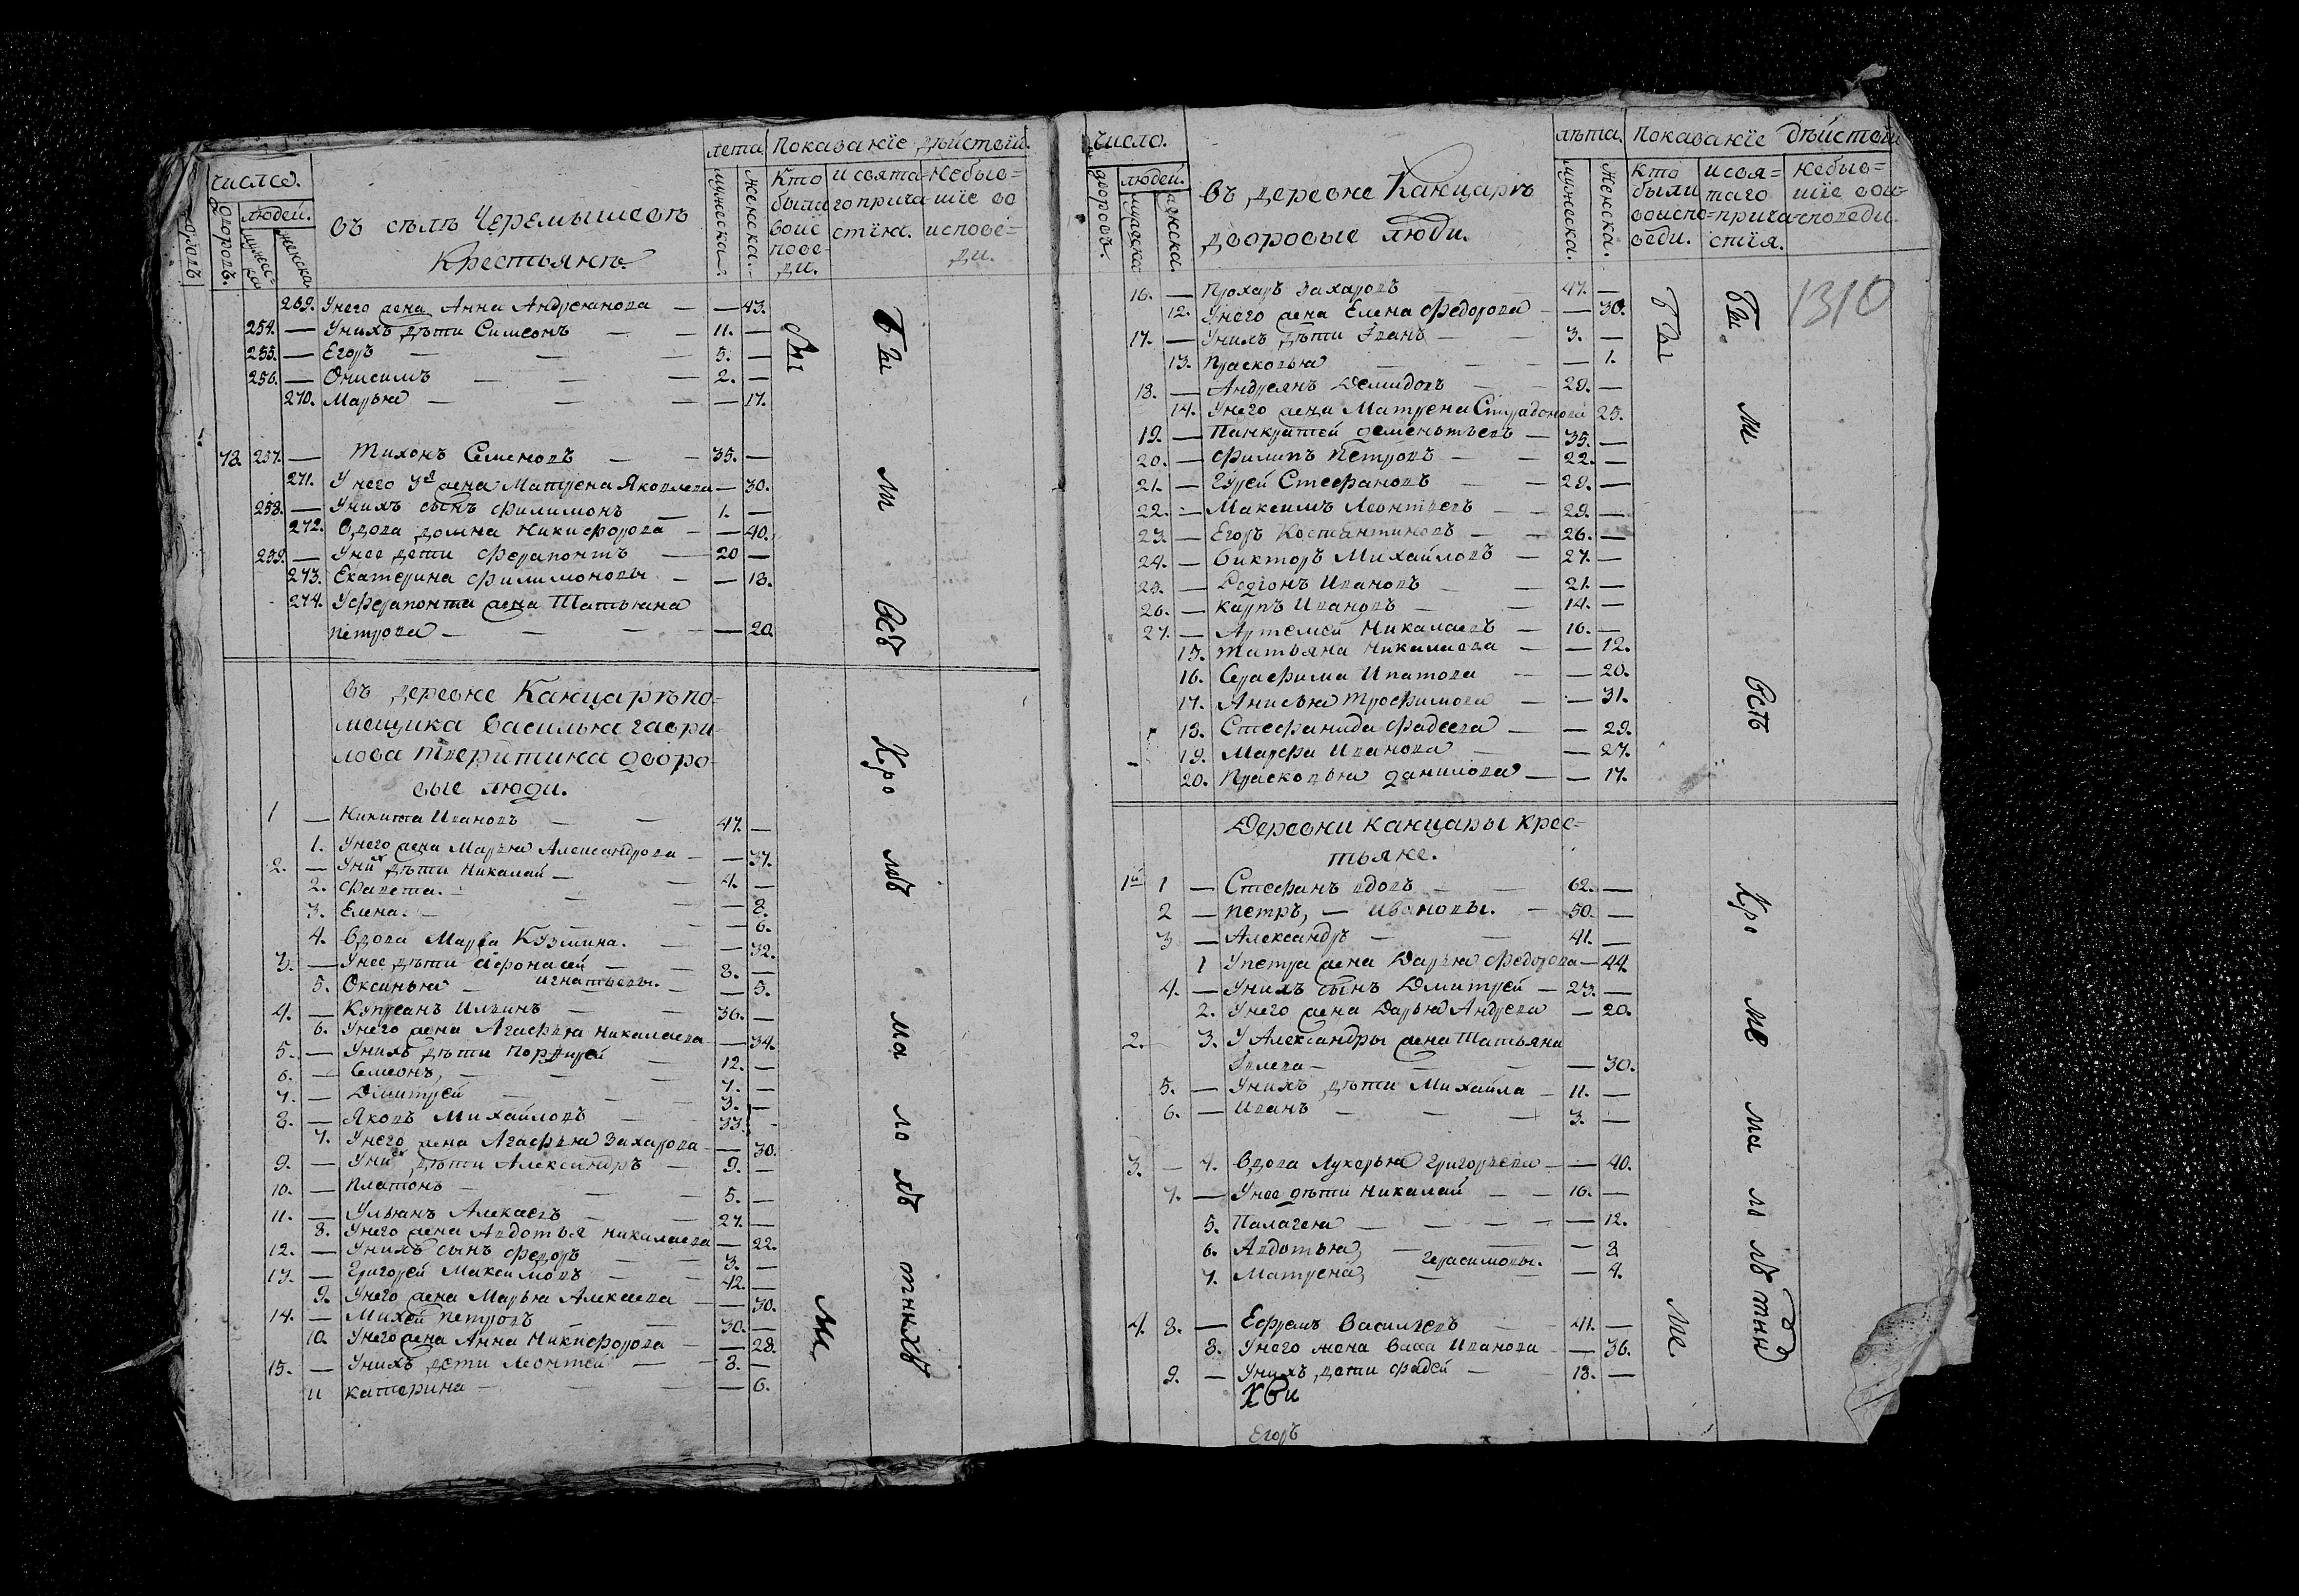 число.
дворовъ.
людей.
мужеска
женска.
въ селѣ Черемышевѣ
Крестьянъ.
лета
мужеска.
женска.
Показанїе дѣйствїй.
Кто были воисповеди.
и святаго причастїя.
небывшїе во исповеди.
269. Унего жена Анна Андреянова — — 43.
254. — Унихъ дѣти Симеонъ — — 11. —
255. — Егоръ — — — 5. —
256. — Онисимъ — — — 2. —
270. Марья — — — — 17.
78. 257. — Тихонъ Семеновъ — — 35. —
271. У него 3я жена Матрена Яковлева — 30.
258. — Унихъ сынъ Филимонъ — 1. —
272. Вдова Домна Никифорова — — 40.
259. — Унее дети Ферапонтъ — 20 —
273. Екатерина Филимоновы — — 18.
274. Уферапонта жена Татьяна
Петрова — — — — 20.
въ деревне Канцарѣ по-
мещика Василья Гаври-
лова Тверитина дворо-
вые люди.
1 — Никита Ивановъ — — 47. —
1. Унего жена Марья Александрова — — 37.
2. — Унихъ дѣти Николай — — 4. —
2. Фавста. — — — 8.
3. Елена. — — — 6.
4. Вдова Марфа Кузмина. — — 32.
3. — Унее дѣти Афонасей — — 8. —
5. Оксинья — Игнатьевы. — — 5.
4. — Купреанъ Ильинъ — — 36. —
6. Унего жена Агафья Николаева — 34.
5. — Унихъ дѣти Порфирей — 12. —
6. — Семеонъ, — — — 7. —
7. — Дмитрей — — — 3. —
8. — Яковъ Михайловъ — — 33. —
7. Унего жена Агафья Захарова — — 30.
9. — Унихъ дѣти Александръ — 9. —
10. — Платонъ — — — 5. —
11. — Ульянъ Алекаевъ — — 27. —
8. Унего жена Авдотья Николаева — 22.
12. — Унихъ сынъ Федоръ — — 3. —
13. — Григорей Максимовъ — — 42. —
9. Унего жена Марья Алексаева — — 30.
14. — Михей Петровъ — — 30. —
10. Унего жена Анна Никифорова — — 28.
15. — Унихъ дети Леонтей — — 8. —
11 Катерина — — — — 6.
бы
ли
всѣ
Кро
мѣ
ма
ло
лѣ
тнихъ
бы
ли
число.
дворовъ.
людей.
мужеска
женска.
въ деревне Канцарѣ
дворовые люди.
лѣта.
мужеска.
женска.
Показанїе дѣйствїй
кто были воисповеди.
и святаго причастїя.
небывшїе воисповеди.
1310
16. — Прохаръ Захаровъ 47. —
12. Унего жена Елена Федорова — — 30.
17. — Унихъ дѣти Іванъ — — 3. —
13. Прасковья — — — 1.
18. — Андреянъ Демидовъ — — 29. —
14. Унего жена Матрена Спиридонова 25.
19. — Панкратей Дементьевъ — 35. —
20. — Филипъ Петровъ — — 22. —
21. — Гурей Стефановъ — — 29. —
22. — Максимъ Леонтьевъ — — 29. —
23. — Егоръ Костентиновъ — — 26. —
24. — Викторъ Михайловъ — 27. —
25. — Родіонъ Ивановъ — — 21. —
26. — Карпъ Ивановъ — — 14. —
27. — Артемей Николаевъ — 16. —
15. Татьяна Николаева — — 12.
16. Серафима Ипатова — — 20.
17. Анисья Трофимова — — 31.
18. Стефанида Фадеева — — 29.
19. Марфа Иванова — — 27.
20. Прасковья Данилова — — 17.
Деревни Канцары Крес-
тьяне.
1й 1 — Стефанъ вдовъ — — 62. —
2 — Петръ, — Ивановы. — 50. —
3 — Александръ — — 41. —
1 У Петра жена Дарья Федорова — 44.
4. — Унихъ сынъ Дмитрей — 23. —
2. Унего жена Дарья Андреева — 20.
2. 3. У Александры жена Татьяна
Іевлева — — — 30.
5. — Унихъ дѣти Михайла — 11. —
6. — Иванъ — — — 3. —
3. — 4. Вдова Лукерья Григорьева — — 40.
7. — Унее дѣти Николай — — 16. —
5. Палагея — — — — 12.
6. Авдотья, — — 8.
7. Матрена, Герасимовы. — 4.
4. 8. — Ефремъ Васильевъ — 41. —
8. Унего жена Васа Иванова — — 36.
9. — Унихъ дети Фадей — — 18. —
Хви
Егоръ
бы
ли
всѣ
Кро
ме
ма
ло
лѣ
тни
бы
ли